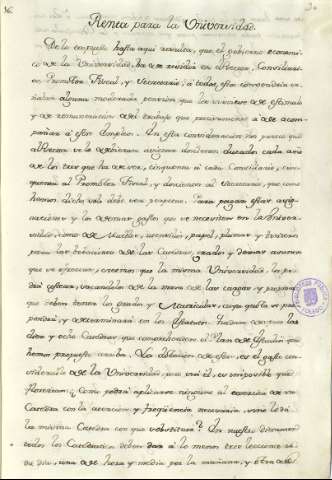 Renta para la Universidad.
De lo expuesto hasta aqui resulta, que el gobierno economico
de la Universidad, ha de residir en el Rector, Consiliarios
Promotor Fiscal, y Secretario; a todos estos convendria se
ñalar alguna moderada pension que les sirviese de estimulo
y de remuneracion del trabajo que precisamente a de acom
pañar a estos empleos. En esta consideracion nos parece que
al Rector se le debieran asignar doscientos ducados cada año
de los tres que ha de ser, cinquenta a cada Consiliario, cin
quenta al Promotor Fiscal, y doscientos al Secretario, que como
hemos dicho
para pagar estas asig
naciones y los demas gastos que se necesiten en la Univer
sidad, como de Muebles, utensilios, papel, plumas y tinteros
para los exercicios de las Catedras, grados y demas asuntos
que se ofrezcan, creemos que la misma Universidad, los po
drá costear, valiendose de la mesa de las
que deben tener los grados y Matriculas, cuya quota se pro
pondrá, y determinará en los Estatutos. Hablemos de las
diez y ocho Catedras que comprehende el Plan de Estudios que
hemos propuesto arriba. La dotacion de estas, es el gasto con
siderable de la Universidad, que sin él, es imposible que
florezcan. Como podrá aplicarse ninguno al exercicio de su
Catedra con la atencion y freqüencia necesaria, sino le dá
la misma Catedra con que substituir? En nuestro dictamen
todos los Catedraticos deben dar a lo menos tres lecciones ca
da dia, una de hora y media por la mañana, y otra de